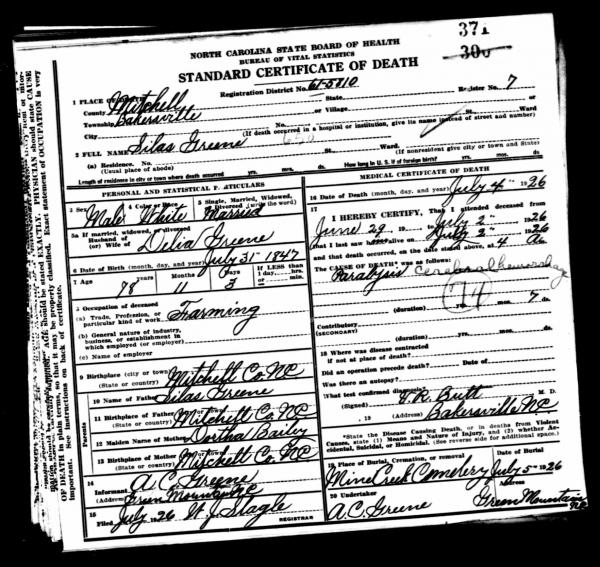 371
300
NORTH CAROLINA STATE BOARD OF HEALTH
BUREAU OF VITAL STATISTICS
STANDARD CERTIFICATE OF DEATH
1 PLACE OF DEATH
Registration District No. 61-5810 Register No. 7
County Mitchell State
Township Bakersville or Village
City No. St. Ward
(If death occurred in a hospital or institution, give its name instead of street and number)
2 FULL NAME Silas Greene
(a) Residence. No. St. Ward
(Usual place of abode) (If nonresident give city or town and State)
Length of residence in city or town where death occurred yrs. mos. ds. How long in U. S. if of foreign birth? yrs. mos. ds.
PERSONAL AND STATISTICAL PARTICULARS
3 Sex Male
4 Color or Race White
5 Single, Married, Widowed, or Divorced (write the word) Married
5a If married, widowed, or divorced
Husband of
(or) Wife of Delia Greene
6 Date of Birth (month, day, and year) July 31 1847
7 Age Years Months Days If LESS than
78 11 3 1 day, hrs.
or min.
8 Occupation of deceased
(a) Trade, Profession, or
particular kind of work Farming
(b) General nature of industry,
business, or establishment in
which employed (or employer)
(c) Name of employer
9 Birthplace (city or town)
(State or country) Mitchell Co NC
Parents
10 Name of Father Silas Greene
11 Birthplace of Father (city or town)
(State or country) Mitchell Co. NC
12 Maiden Name of Mother Bailey
13 Birthplace of Mother (city or town)
(State or country) Mitchell Co NC
14
Informant A. C. Greene
(Address) Green Mountain NC
15
Filed July 1926 Slagle
REGISTRAR
MEDICAL CERTIFICATE OF DEATH
16 Date of Death (month, day, and year) July 4" 1926
17
I HEREBY CERTIFY, That I attended deceased from
June 29, 19 to July 2" 1926
that I last saw alive on July 2" 1926
and that death occurred, on the date stated above, at 4 m.
The CAUSE OF DEATH* was as follows:
Paralysis cerebral hemorrhage
74
(duration) yrs. mos. 7 ds.
Contributory
(SECONDARY)
(duration) yrs. mos. ds.
18 Where was disease contracted
if not at place of death?
Did an operation precede death? Date of
Was there an autopsy?
What test confirmed diagnosis?
(Signed) Butt M. D.
, 19 (Address) Bakersville NC
*State the Disease Causing Death, or in deaths from Violent
Causes, state (1) Means and Nature of Injury, and (2) whether Accidental, Suicidal, or Homicidal. (See reverse side for additional space.)
19 Place of Burial, Cremation, or removal Date of Burial
Mine Creek Cemetery July 5" 1926
20 Undertaker
A. C. Greene Green Mountain NC